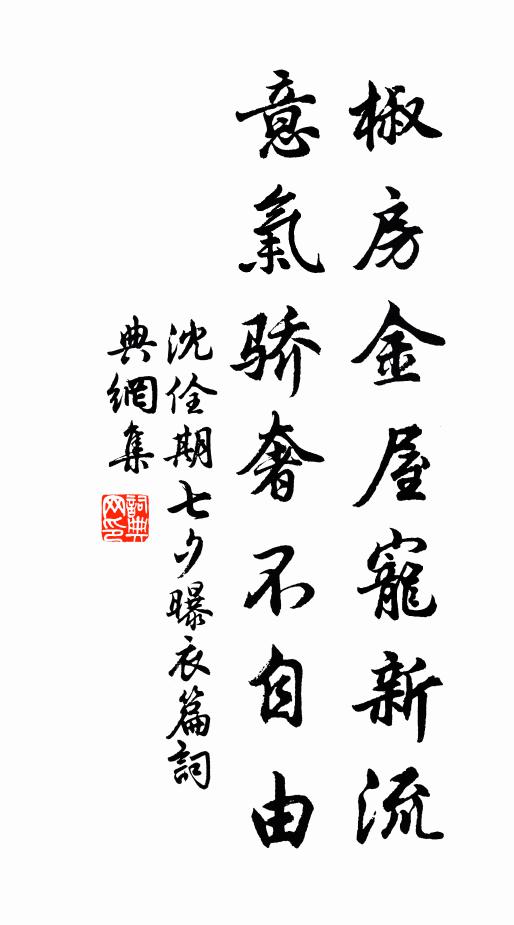 椒房金屋寵新流
意氣骄奢不自由
沈佺期七夕曝衣篇詞
典網集
詞典
网印